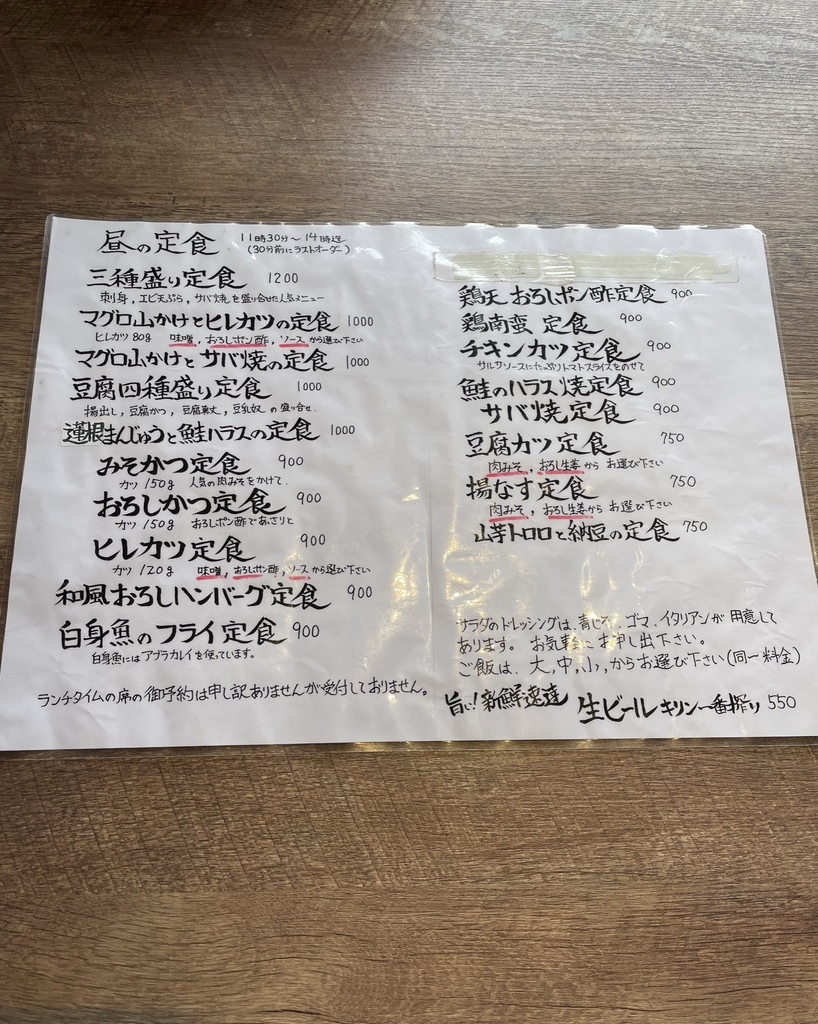 昼の定食 11時30分〜14時迄
(30分前にラストオーダー)
三種盛り定食 1200
刺身、エビ天ぷら、サバ焼を盛り合せた人気メニュー
マグロ山かけとヒレカツの定食 1000
ヒレカツ 80g 味噌、おろしポン酢、ソースから選び下さい
マグロ山かけとサバ焼の定食 1000
豆腐四種盛り定食 1000
揚出し、豆腐かつ、豆腐東丈、豆乳奴の盛り合せ.
蓮根まんじゅうと鮭ハラスの定食 1000
みそかつ定食 900
カツ 150g 人気の肉みそをかけて.
おろしかつ定食 900
カツ 150g おろしポン酢であっさりと
ヒレカツ定食 900
カツ 120g 味噌、おろしポン酢、ソースから選び下さい
和風おろしハンバーグ定食 900
白身魚のフライ定食 900
白身魚にはアブラカレイを使っています。
ランチタイムの席の御予約は申し訳ありませんが受付しておりません。
鶏天おろしポン酢定食 900
鶏南蛮 定食 900
チキンカツ定食 900
サルサソースにたっぷりトマトスライスをのせて
鮭のハラス焼定食 900
サバ焼定食 900
豆腐カツ定食 750
肉みそ、おろし生姜からお選び下さい
揚なす定食 750
肉みそ、おろし生姜からお選び下さい
山芋トロロと納豆の定食 750
サラダのドレッシングは、青じそ、ゴマ、イタリアンが用意して
あります。お気軽にお申し出下さい。
ご飯は、大、中、小、からお選び下さい(同一料金)
旨い!新鮮速達 生ビール キリン一番搾り 550